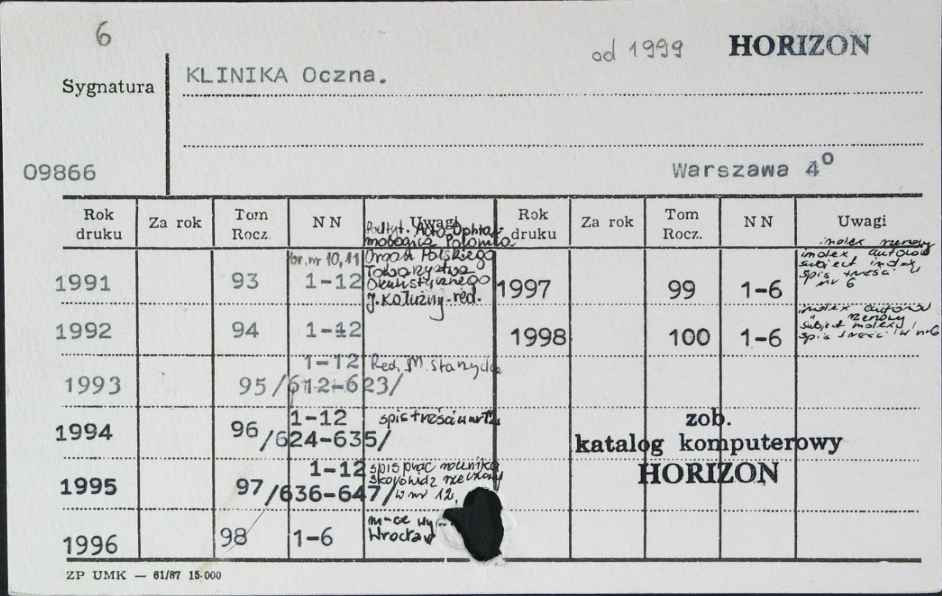 6
od 1999 HORIZON
KLINIKA Oczna.
Sygnatura
09866
Warszawa 4°
Rok druku Za rok Tom Rocz. NN Uwagi Rok druku Za rok Tom Rocz. NN Uwagi
Acta Ophtal-
mologica Polonica
Organ Polskiego
Towarzystwa
Okulistycznego
J. Kałużny-red.
br. nr 10, 11
1991 93 1-12
1992 94 1-12
1993 95 /612-623/ 1-12 Red. M. Starzycka
1994 96 /624-635/ 1-12 spis treści w nr 12
1995 97 /636-647/ 1-12 spis prac rocznika
skorowidz rzeczowy
w nr 12.
1996 98 1-6 m-ce wy-
Wrocław
1997 99 1-6 index rzeczowy
index autorów
subject index
spis treści
nr 6
1998 100 1-6 index autorów
rzeczowy
subject index
spis treści w nr 6
zob.
katalog komputerowy
HORIZON
ZP UMK — 61/87 15·000